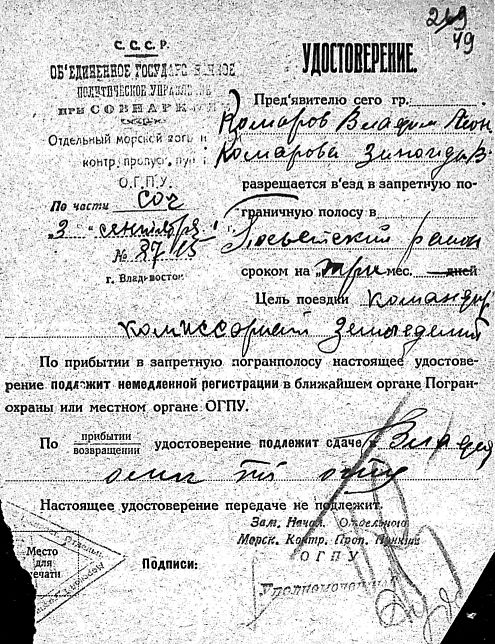 49
С. С. С. Р.
ОБ'ЕДИНЕННОЕ ГОСУДАРСТВЕННОЕ
ПОЛИТИЧЕСКОЕ УПРАВЛЕНИЕ
ПРИ СОВНАРКОМЕ
Отдельный морской
контр. пропуск. пункт
О.Г.П.У.
По части СОЧ
„3" сентября
№ 3715
г. Владивосток
УДОСТОВЕРЕНИЕ.
Пред'явителю сего гр.
Комаров Владим Леон
Комарова
разрешается в'езд в запретную по-
граничную полосу в
Посьетский район
сроком на „три мес. дней
Цель поездки командир
комиссариат Земледелия
По прибытии в запретную погранполосу настоящее удостове-
рение подлежит немедленной регистрации в ближайшем органе Погран-
охраны или местном органе ОГПУ.
По прибытии
возвращении удостоверение подлежит сдаче в
Настоящее удостоверение передаче не подлежит.
Зам. Начал. Отдельного
Морск. Контр. Проп. Пункта
ОГПУ
Место
для
печати
Подписи:
Уполномоченный